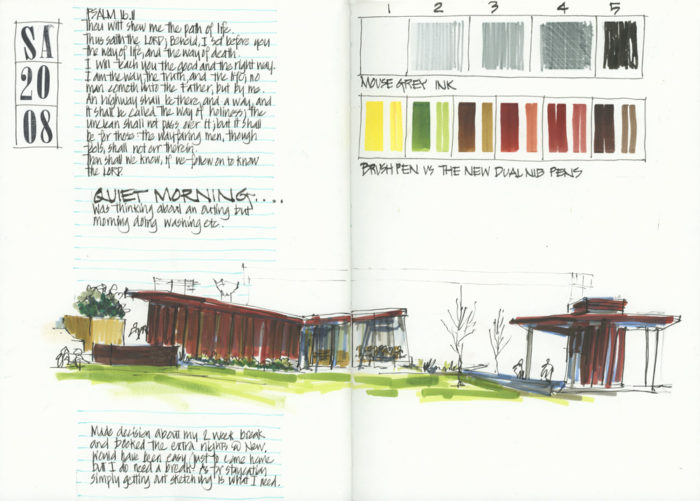 SA
20
08
PSALM 16.11
Thou wilt show me the path of life.
Thus saith the LORD; Behold, I set before you
the way of life, and the way of death.
I will teach you the good and the right way.
I am the way, the truth, and the life; no
man cometh unto the Father, but by me.
An highway shall be there, and a way, and
it shall be called The way of holiness; the
unclean shall not pass over it; but it shall
be for those: the wayfaring men, though
fools, shall not err therein.
Then shall we know, if we follow on to know
the LORD.
QUIET MORNING....
Was thinking about an outing but
morning doing washing etc.
1 2 3 4 5
MOUSE GREY INK
BRUSH PEN VS THE NEW DUAL NIB PENS
Made decision about my 2 week break
and booked the extra nights so New.
Would have been easy just to come home
but I do need a break. As for staycation
simply getting out sketching is what I need.